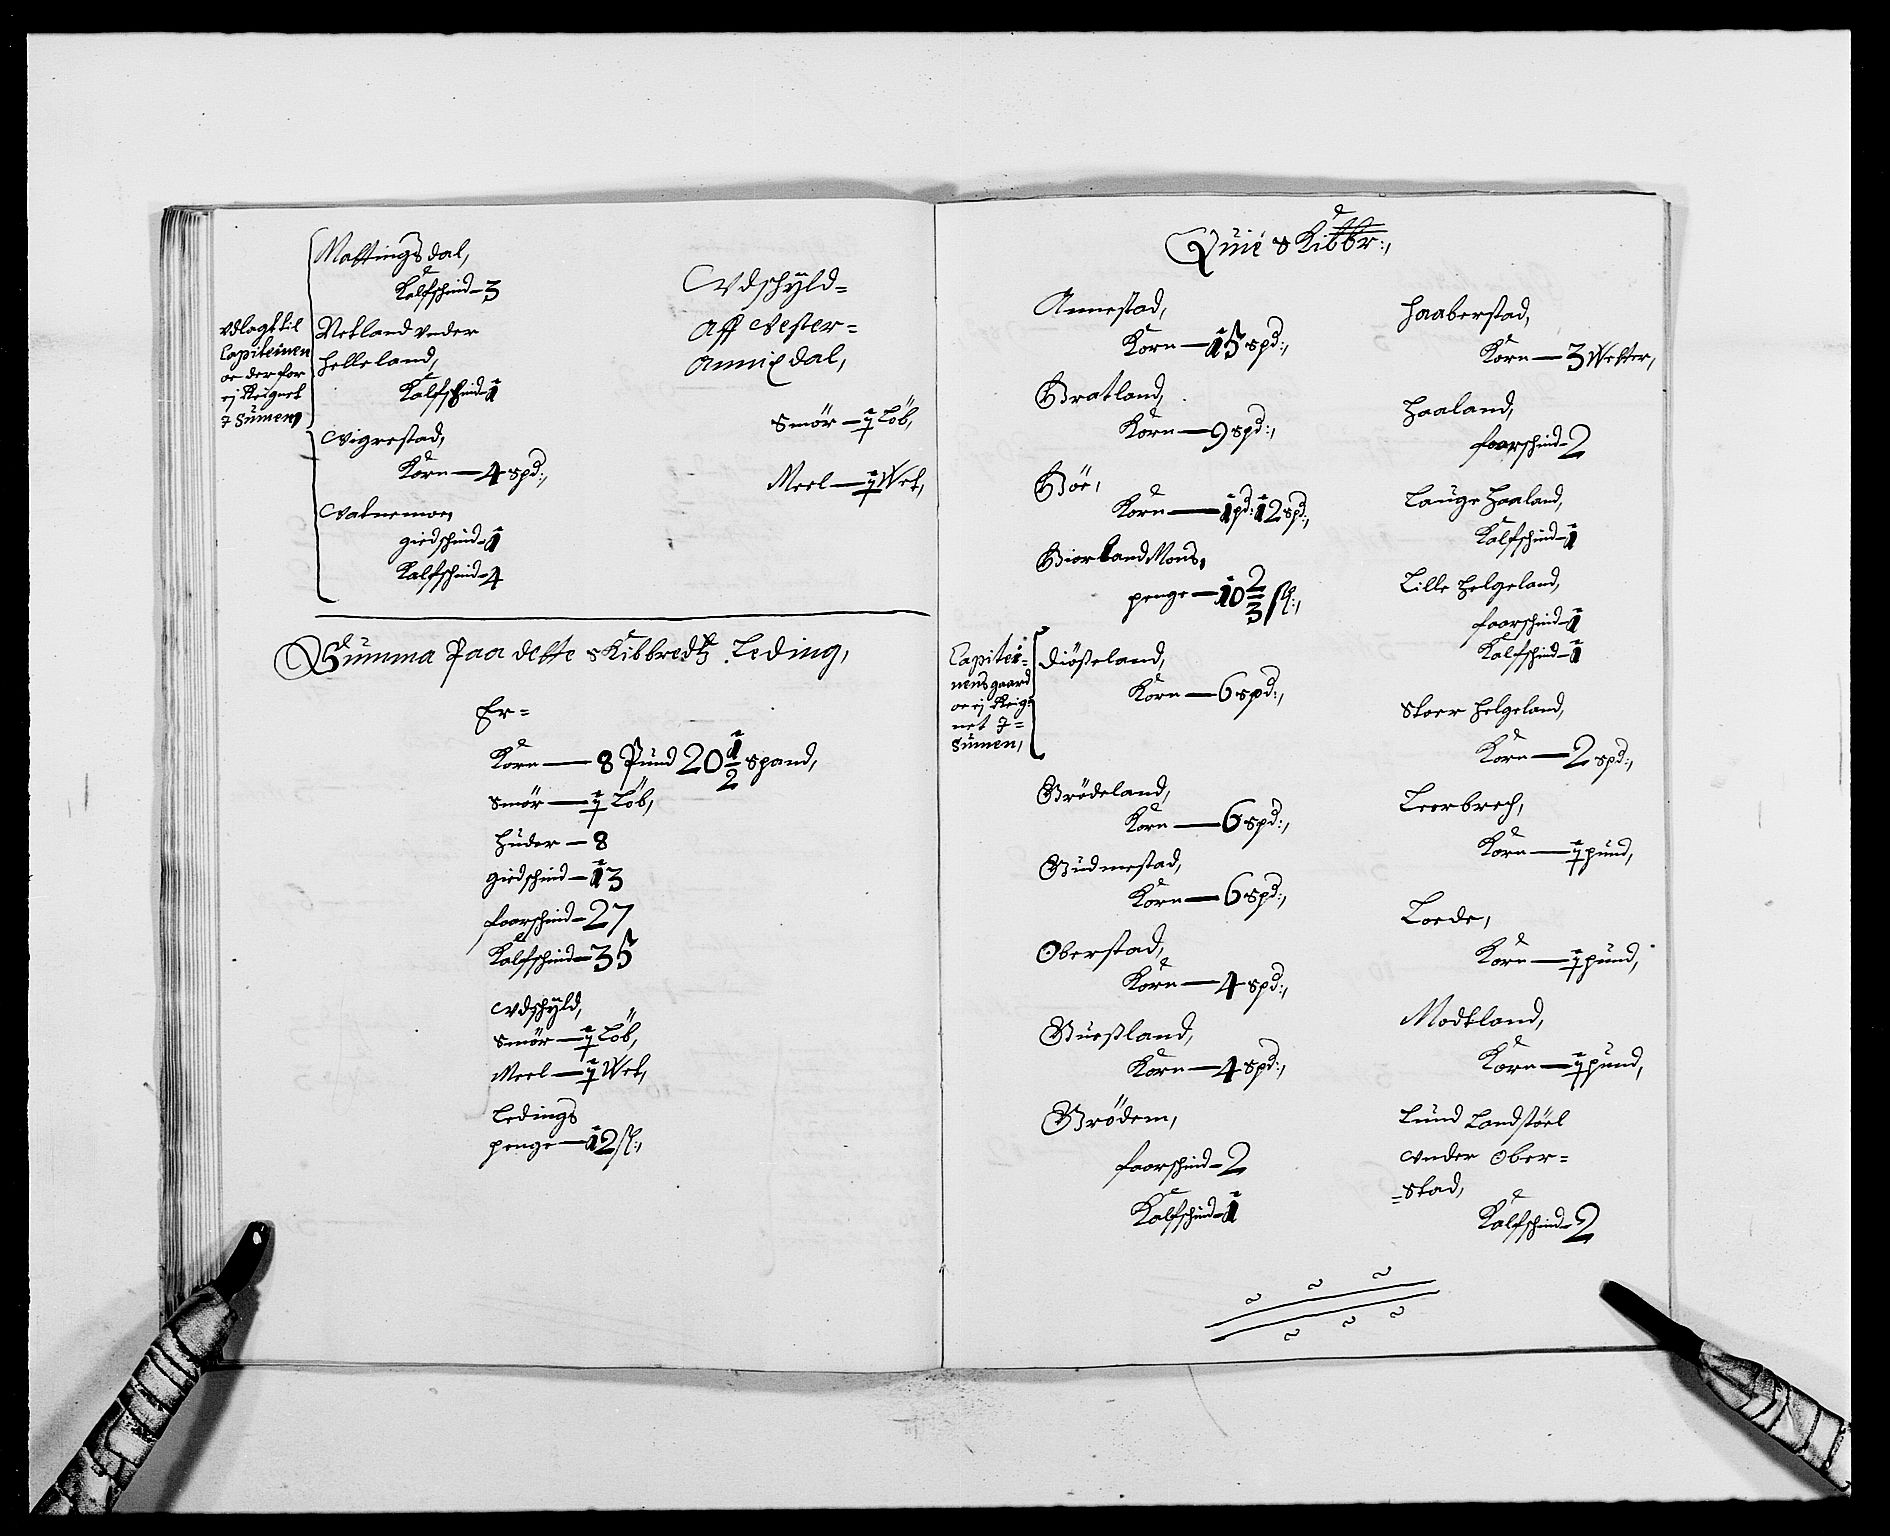 Mattingsdal,
Kalfschind - 3
Udlagt til
Capiteinen
oc der for
ej Reignet
J Sumen,
Netland under
Helleland,
Kalfschind - 1
Vigrestad,
Korn — 4 spd:,
Vatnemoen
giedschind - 1
Kalfschind - 4
Udschÿld=
Aff Vester=
Annixdal,
Smör — 1 Löb,
Meel — 1 Wet,
Summa Paa dette Skibbredtz Leding,
Er=
Korn — 8 Pund 20 1/2 spand,
Smör — 1 Löb,
Huder — 8
giedschind - 13
faarschind - 27
Kalfschind - 35
Udschÿld,
Smör — 1 Löb,
Meel — 1 Wet,
Ledings
penge — 12 sl:,
Quie Skibbr:,
Annestad,
Korn — 15 spd:,
Bratland,
Korn — 9 spd:,
Böe,
Korn — 1 pd: 12 spd:,
Biorland Mons,
penge — 10 2/3 sl:,
Capitei=
nens gaard
oc ej Reig=
net J=
Sumen,
Diösseland,
Korn — 6 spd:,
Brödeland,
Korn — 6 spd:,
Budmestad,
Korn — 6 spd:,
Oberstad,
Korn — 4 spd:,
Buesland,
Korn — 4 spd:,
Brödem,
faarschind - 2
Kalfschind - 1
Haaberstad,
Korn — 3 Wetter,
Haaland,
faarschind - 2
Lauge Haaland,
Kalfschind - 1
Lille Helgeland,
faarschind - 1
Kalfschind - 1
Stoer Helgeland,
Korn — 2 spd:,
Leerbrech,
Korn — 1 pund,
Loede,
Korn — 1 pund,
Modtland,
Korn — 1 pund,
Lund Landstöel
under Ober=
=stad,
Kalfschind - 2